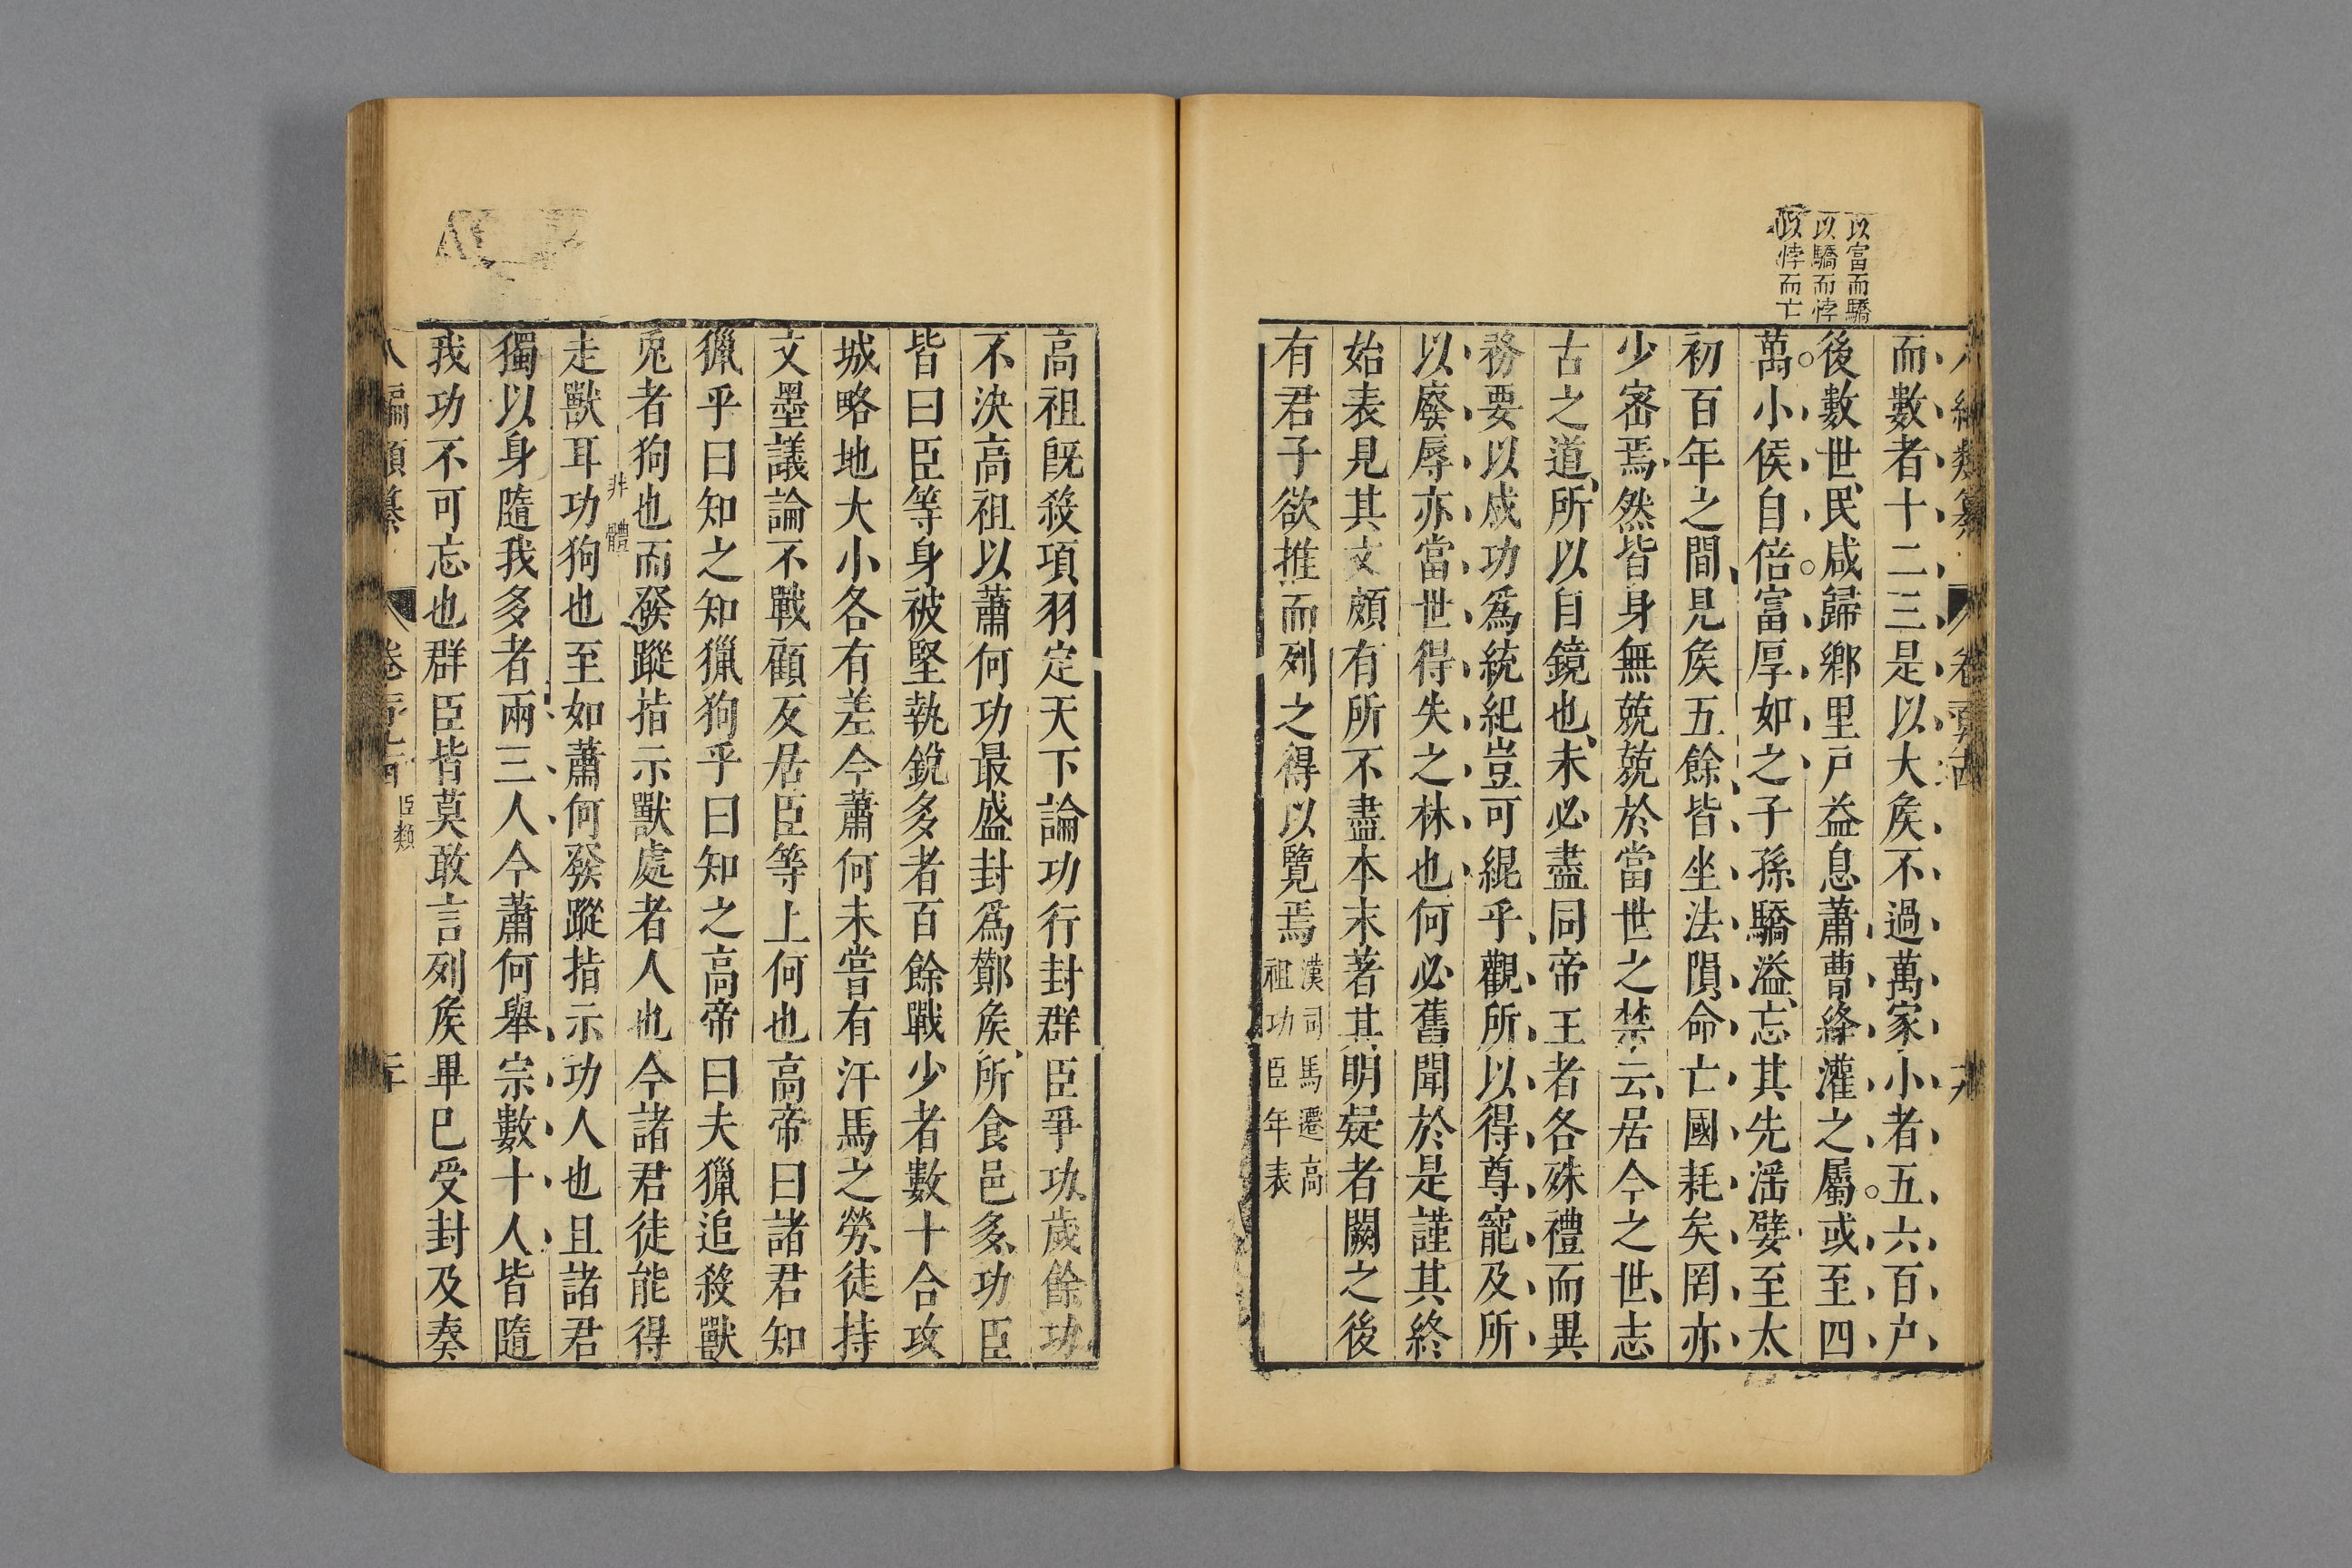 以富而驕
以驕而悖
以悖而亡
而數者十二三是以大矦不過萬家小者五六百户
後數世民咸歸鄉里戸益息蕭曹絳灌之屬或至四
萬小侯自倍富厚如之子孫驕溢忘其先滛嬖至太
初百年之間見矦五餘皆坐法隕命亡國耗矣罔亦
少宻焉然皆身無兢兢於當世之禁云居今之世志
古之道所以自鏡也未必盡同帝王者各殊禮而異
務要以成功爲統紀豈可緄乎觀所以得尊寵及所
以廢辱亦當世得失之林也何必舊聞於是謹其終
始表見其文頗有所不盡本末著其明疑者闕之後
有君子欲推而列之得以覽焉
漢司馬遷高
祖功臣年表
高祖旣殺項羽定天下論功行封群臣爭功歲餘功
不決高祖以蕭何功最盛封爲酇矦所食邑多功臣
皆曰臣等身被堅執銳多者百餘戰少者數十合攻
城略地大小各有差今蕭何未嘗有汗馬之勞徒持
文墨議論不戰顧反居臣等上何也高帝曰諸君知
獵乎曰知之知獵狗乎曰知之高帝曰夫獵追殺獸
兎者狗也而發蹤指示獸處者人也今諸君徒能得
非體
走獸耳功狗也至如蕭何發蹤指示功人也且諸君
獨以身隨我多者兩三人今蕭何舉宗數十人皆隨
我功不可忘也群臣皆莫敢言列矦畢巳受封及奏
臣類